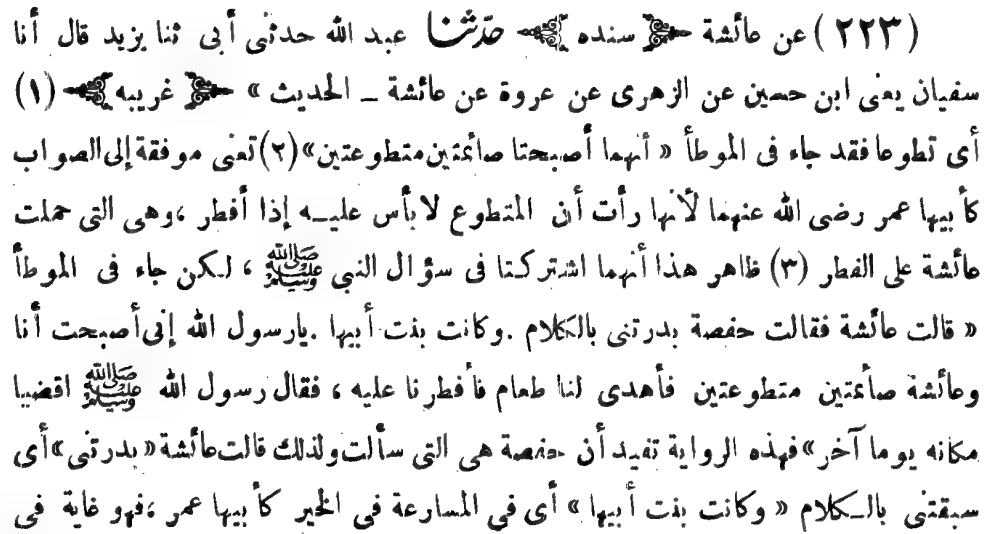 (٢٢٣) عن عائشة ﴿ سنده ﴾ حدثنا عبد الله حدثنى أبى ثنا يزيد قال أنا
سفيان يعنى ابن حسين عن الزهرى عن عروة عن عائشة ـ الحديث » ﴿ غريبه ﴾ (١)
أى تطوعا فقد جاء فى الموطأ « أنهما أصبحتا صائمتين متطوعتين» (٢) تعنى موفقة إلى الصواب
كأبيها عمر رضى الله عنهما لأنها رأت أن المتطوع لا بأس عليـه إذا أفطر ، وهى التى حملت
عائشة على الفطر (٣) ظاهر هذا أنهما اشتركتا فى سؤال النبى ﷺ ، لكن جاء فى الموطأ
« قالت عائشة فقالت حفصة بدرتنى بالكلام . وكانت بنت أبيها . يارسول الله إنى أصبحت أنا
وعائشة صائمتين متطوعتين فأهدى لنا طعام فأفطرنا عليه ، فقال رسول الله ﷺ اقضيا
مكانه يوما آخر » فهذه الرواية تفيد أن حفصة هى التى سألت ولذلك قالت عائشة « بدرتنى » أى
سبقتنى بالـكلام « وكانت بنت أبيها » أى فى المسارعة فى الخير كأبيها عمر ، فهو غاية فى